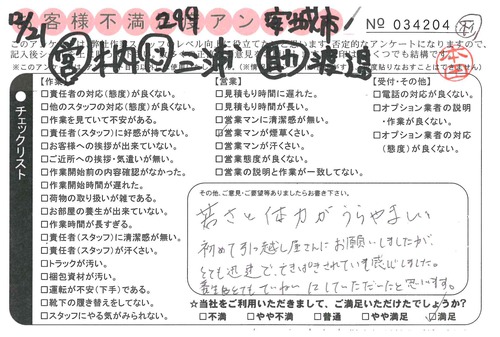 お客様不満 アン
299 安城市
No 034204
このアンケートは、弊社作業スタッフのレベル向上に役立てて
否定的なアンケートになりますので、
いくつでも結構です。
三浦 助 渡邉
チェックリスト
【作業】
□責任者の対応(態度)が良くない。
□他のスタッフの対応(態度)が良くない。
□作業を見ていて不安がある。
□責任者(スタッフ)に好感が持てない。
□お客様への挨拶が出来ていない。
□ご近所への挨拶・気遣いが無い。
□作業開始前の内容確認がなかった。
□作業開始時間が遅れた。
□荷物の取り扱いが雑である。
□お部屋の養生が出来ていない。
□作業時間が長すぎる。
□責任者(スタッフ)に清潔感が無い。
□責任者(スタッフ)が汗くさい。
□トラックが汚い。
□梱包資材が汚い。
□運転が不安(下手)である。
□靴下の履き替えをしてない。
□スタッフにやる気がみられない。
【営業】
□見積もり時間に遅れた。
□見積もり時間が長い。
□営業マンに清潔感が無い。
□営業マンが煙草くさい。
□営業マンが汗くさい。
□営業態度が良くない。
□営業の説明と作業が一致してない。
【受付・その他】
□電話の対応が良くない。
□オプション業者の説明
・作業が良くない。
□オプション業者の対応
(態度)が良くない。
その他、ご意見・ご要望等ありましたらお書き下さい。
若さと体力がうらやましい
初めて引っ越し屋さんにお願いしましたが、
とても迅速で、てきぱきされている感じしました。
養生もとてもていねいにしていただいたと思います。
☆当社をご利用いただきまして、ご満足いただけたでしょうか?
□不満 □やや不満 □普通 □やや満足 ☑満足